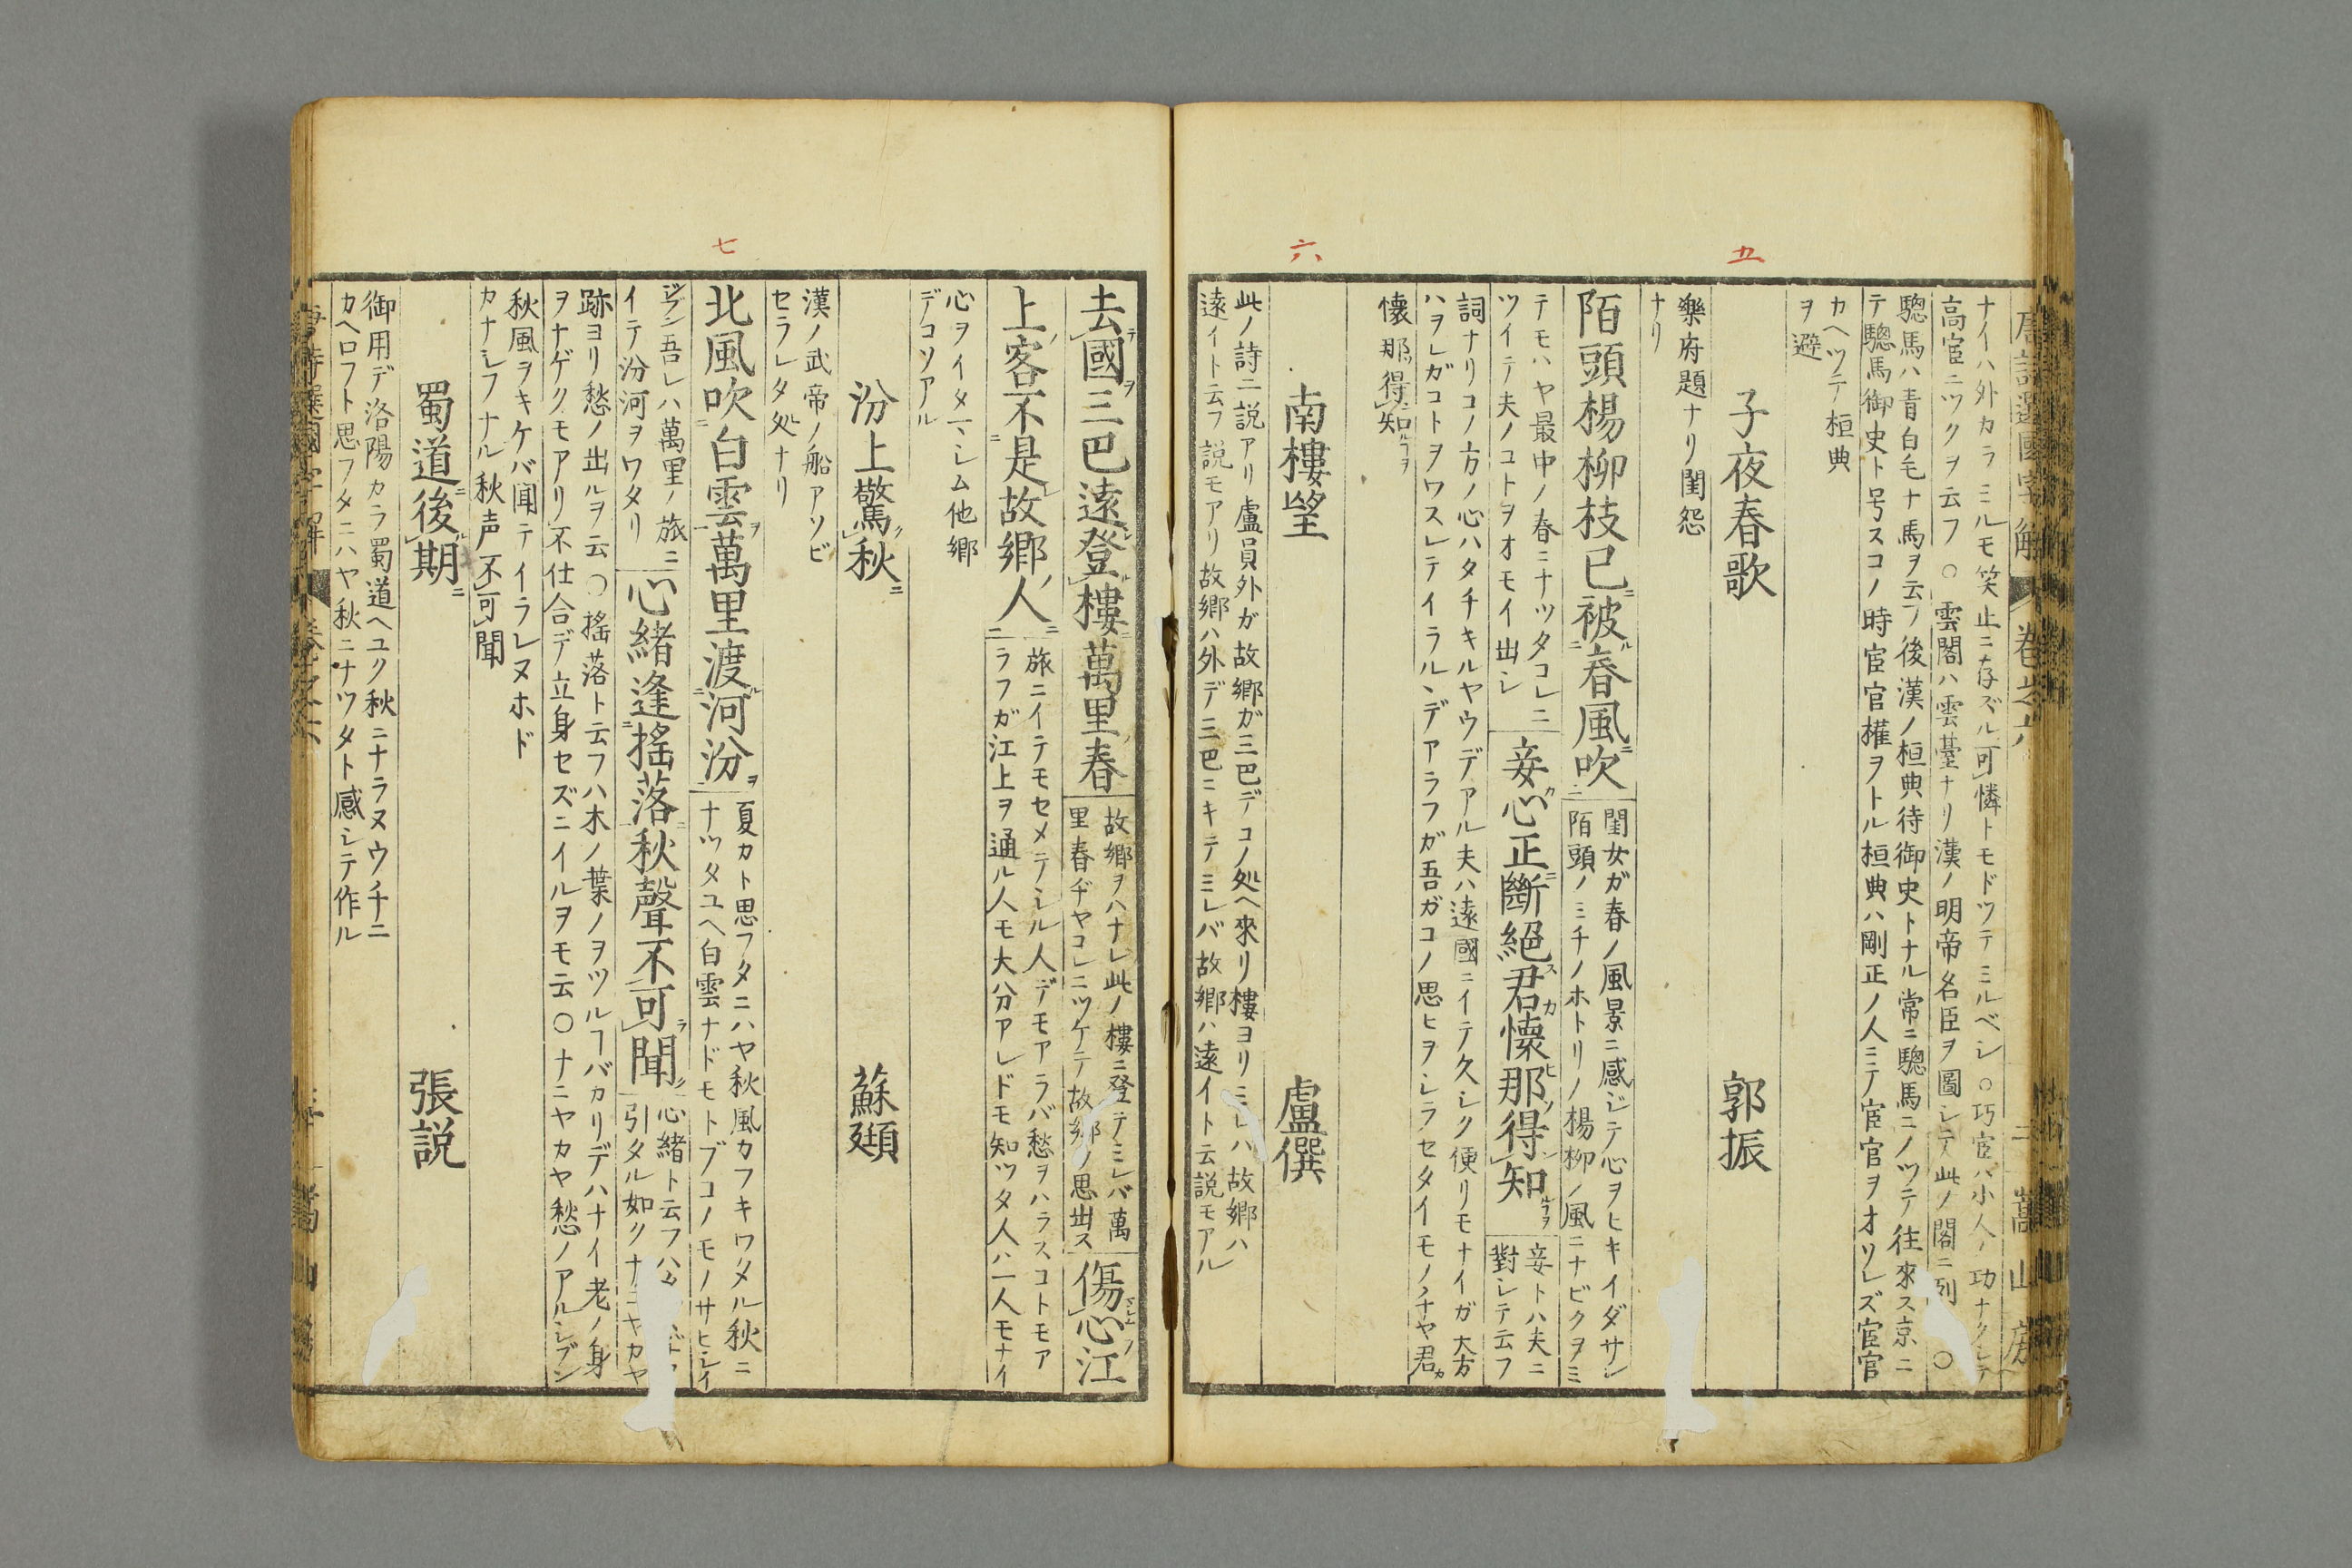 五
六
ナイハ外カラミルモ笑止ニ存ズル可憐トモドツテミルベシ○巧宦ハ小人ノ功ナクシテ
高宦ニツクヲ云フ○雲閣ハ雲臺ナリ漢ノ明帝名臣ヲ圖シテ此ノ閣ニ列○
驄馬ハ青白毛ナ馬ヲ云フ後漢ノ桓典待御史トナル常ニ驄馬ニノツテ往來ス京ニ
テ驄馬御史ト号スコノ時宦官權ヲトル桓典ハ剛正ノ人ニテ宦官ヲオソレズ宦官
カヘツテ桓典
ヲ避
子夜春歌 郭振
樂府題ナリ閨怨
ナリ
陌頭楊柳枝已被春風吹
閨女ガ春ノ風景ニ感ジテ心ヲヒキイダサレ
陌頭ノミチノホトリノ楊柳ノ風ニナビクヲミ
テモハヤ最中ノ春ニナツタコレニ
ツイテ夫ノコトヲオモイ出シ
妾心正斷絕君懷那得知
妾トハ夫ニ
對シテ云フ
詞ナリコノ方ノ心ハタチキルヤウデアル夫ハ遠國ニイテ久シク便リモナイガ大方
ハヲレガコトヲワスレテイラルヽデアラフガ吾ガコノ思ヒヲシラセタイモノヂヤ君
懷那得知
南樓望 盧僎
此ノ詩ニ説アリ盧員外ガ故郷ガ三巴デコノ処ヘ來リ樓ヨリミレハ故郷ハ
遠イト云フ説モアリ故郷ハ外デ三巴ニキテミレバ故郷ハ遠イト云説モアル
七
去國三巴遠登樓萬里春
故郷ヲハナレ此ノ樓ニ登テミレバ萬
里春ヂヤコレニツケテ故郷ノ思出ス
傷心江
上客不是故鄉人
旅ニイテモセメテシル人デモアラバ愁ヲハラスコトモア
ラフガ江上ヲ通ル人モ大分アレドモ知ツタ人ハ一人モナイ
心ヲイタマシム他郷
デコソアル
汾上驚秋 蘇頲
漢ノ武帝ノ船アソビ
セラレタ処ナリ
北風吹白雲萬里渡河汾
夏カト思フタニハヤ秋風カフキワメル秋ニ
ナツタユヘ白雲ナドモトブコノモノサヒシイ
ジブン吾レハ萬里ノ旅ニ
イテ汾河ヲワタリ
心緒逢搖落秋聲不可聞
心緒ト云フハ
引タル如クナニヤカヤ
跡ヨリ愁ノ出ルヲ云○搖落ト云フハ木ノ葉ノヲツルヿバカリデハナイ老ノ身
ヲナゲクモアリ不仕合デ立身セズニイルヲモ云○ナニヤカヤ愁ノアルジブン
秋風ヲキケバ聞テイラレヌホド
カナシフナル秋声不可聞
蜀道後期 張説
御用デ洛陽カラ蜀道ヘユク秋ニナラヌウチニ
カヘロフト思フタニハヤ秋ニナツタト感シテ作ル